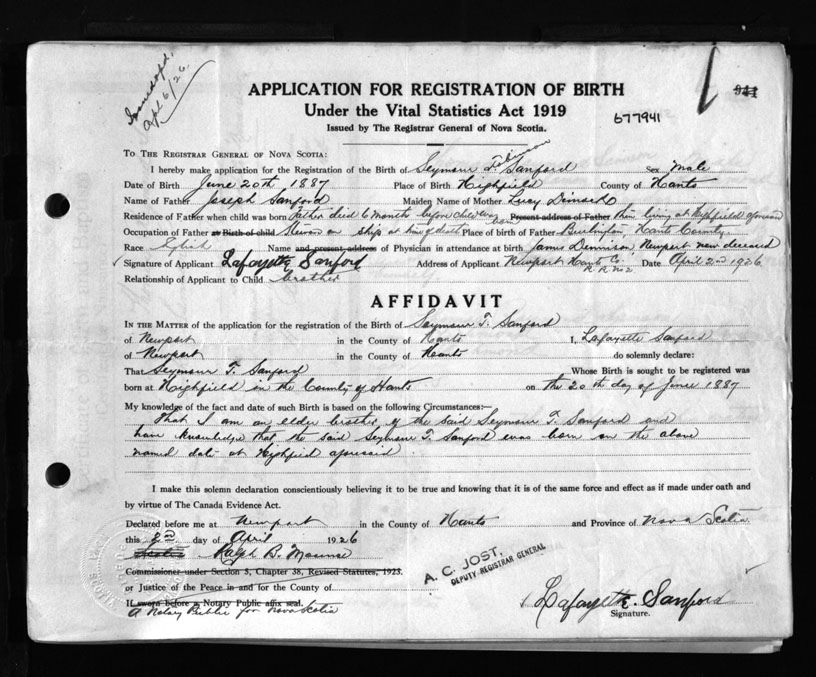 Apl 6/26.
APPLICATION FOR REGISTRATION OF BIRTH
941
Under the Vital Statistics Act 1919
677941
Issued by The Registrar General of Nova Scotia.
TO THE REGISTRAR GENERAL OF NOVA SCOTIA:
I hereby make application for the Registration of the Birth of Seymour T. Sanford Sex Male
Date of Birth June 20th, 1887 Place of Birth Highfield County of Hants
Name of Father Joseph Sanford Maiden Name of Mother Lucy Dimock
Residence of Father when child was born Father died 6 months before child was born Present address of Father then living at Highfield aforesaid
Occupation of Father at Birth of child on ship at time of death Place of birth of Father Burlington, Hants County.
Race Name and present address of Physician in attendance at birth James Dennison, Newport now deceased
Signature of Applicant Lafayette Sanford Address of Applicant Newport Hants Co. R R No 2 Date April 2nd 1926
Relationship of Applicant to Child brother
AFFIDAVIT
IN THE MATTER of the application for the registration of the Birth of Seymour T. Sanford
of Newport in the County of Hants I, Lafayette Sanford
of Newport in the County of Hants do solemnly declare:
That Seymour T. Sanford Whose Birth is sought to be registered was
born at Highfield in the County of Hants on the 20th day of June 1887
My knowledge of the fact and date of such Birth is based on the following Circumstances:—
That I am an elder brother of the said Seymour T. Sanford and
have knowledge that the said Seymour T. Sanford was born on the above
named date at Highfield aforesaid.
I make this solemn declaration conscientiously believing it to be true and knowing that it is of the same force and effect as if made under oath and
by virtue of The Canada Evidence Act.
Declared before me at Newport in the County of Hants and Province of Nova Scotia
this 2nd day of April 1926
Ralph B.
A. C. JOST,
DEPUTY REGISTRAR GENERAL
Commissioner under Section 3, Chapter 38, Revised Statutes, 1923.
or Justice of the Peace in and for the County of
If sworn before a Notary Public affix seal.
A Notary Public for Nova Scotia
Lafayette Sanford
Signature.